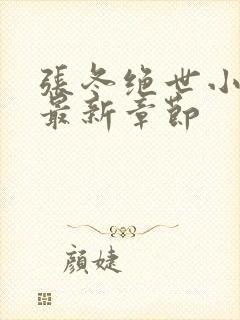 張冬绝世小
最新章節
顔婕